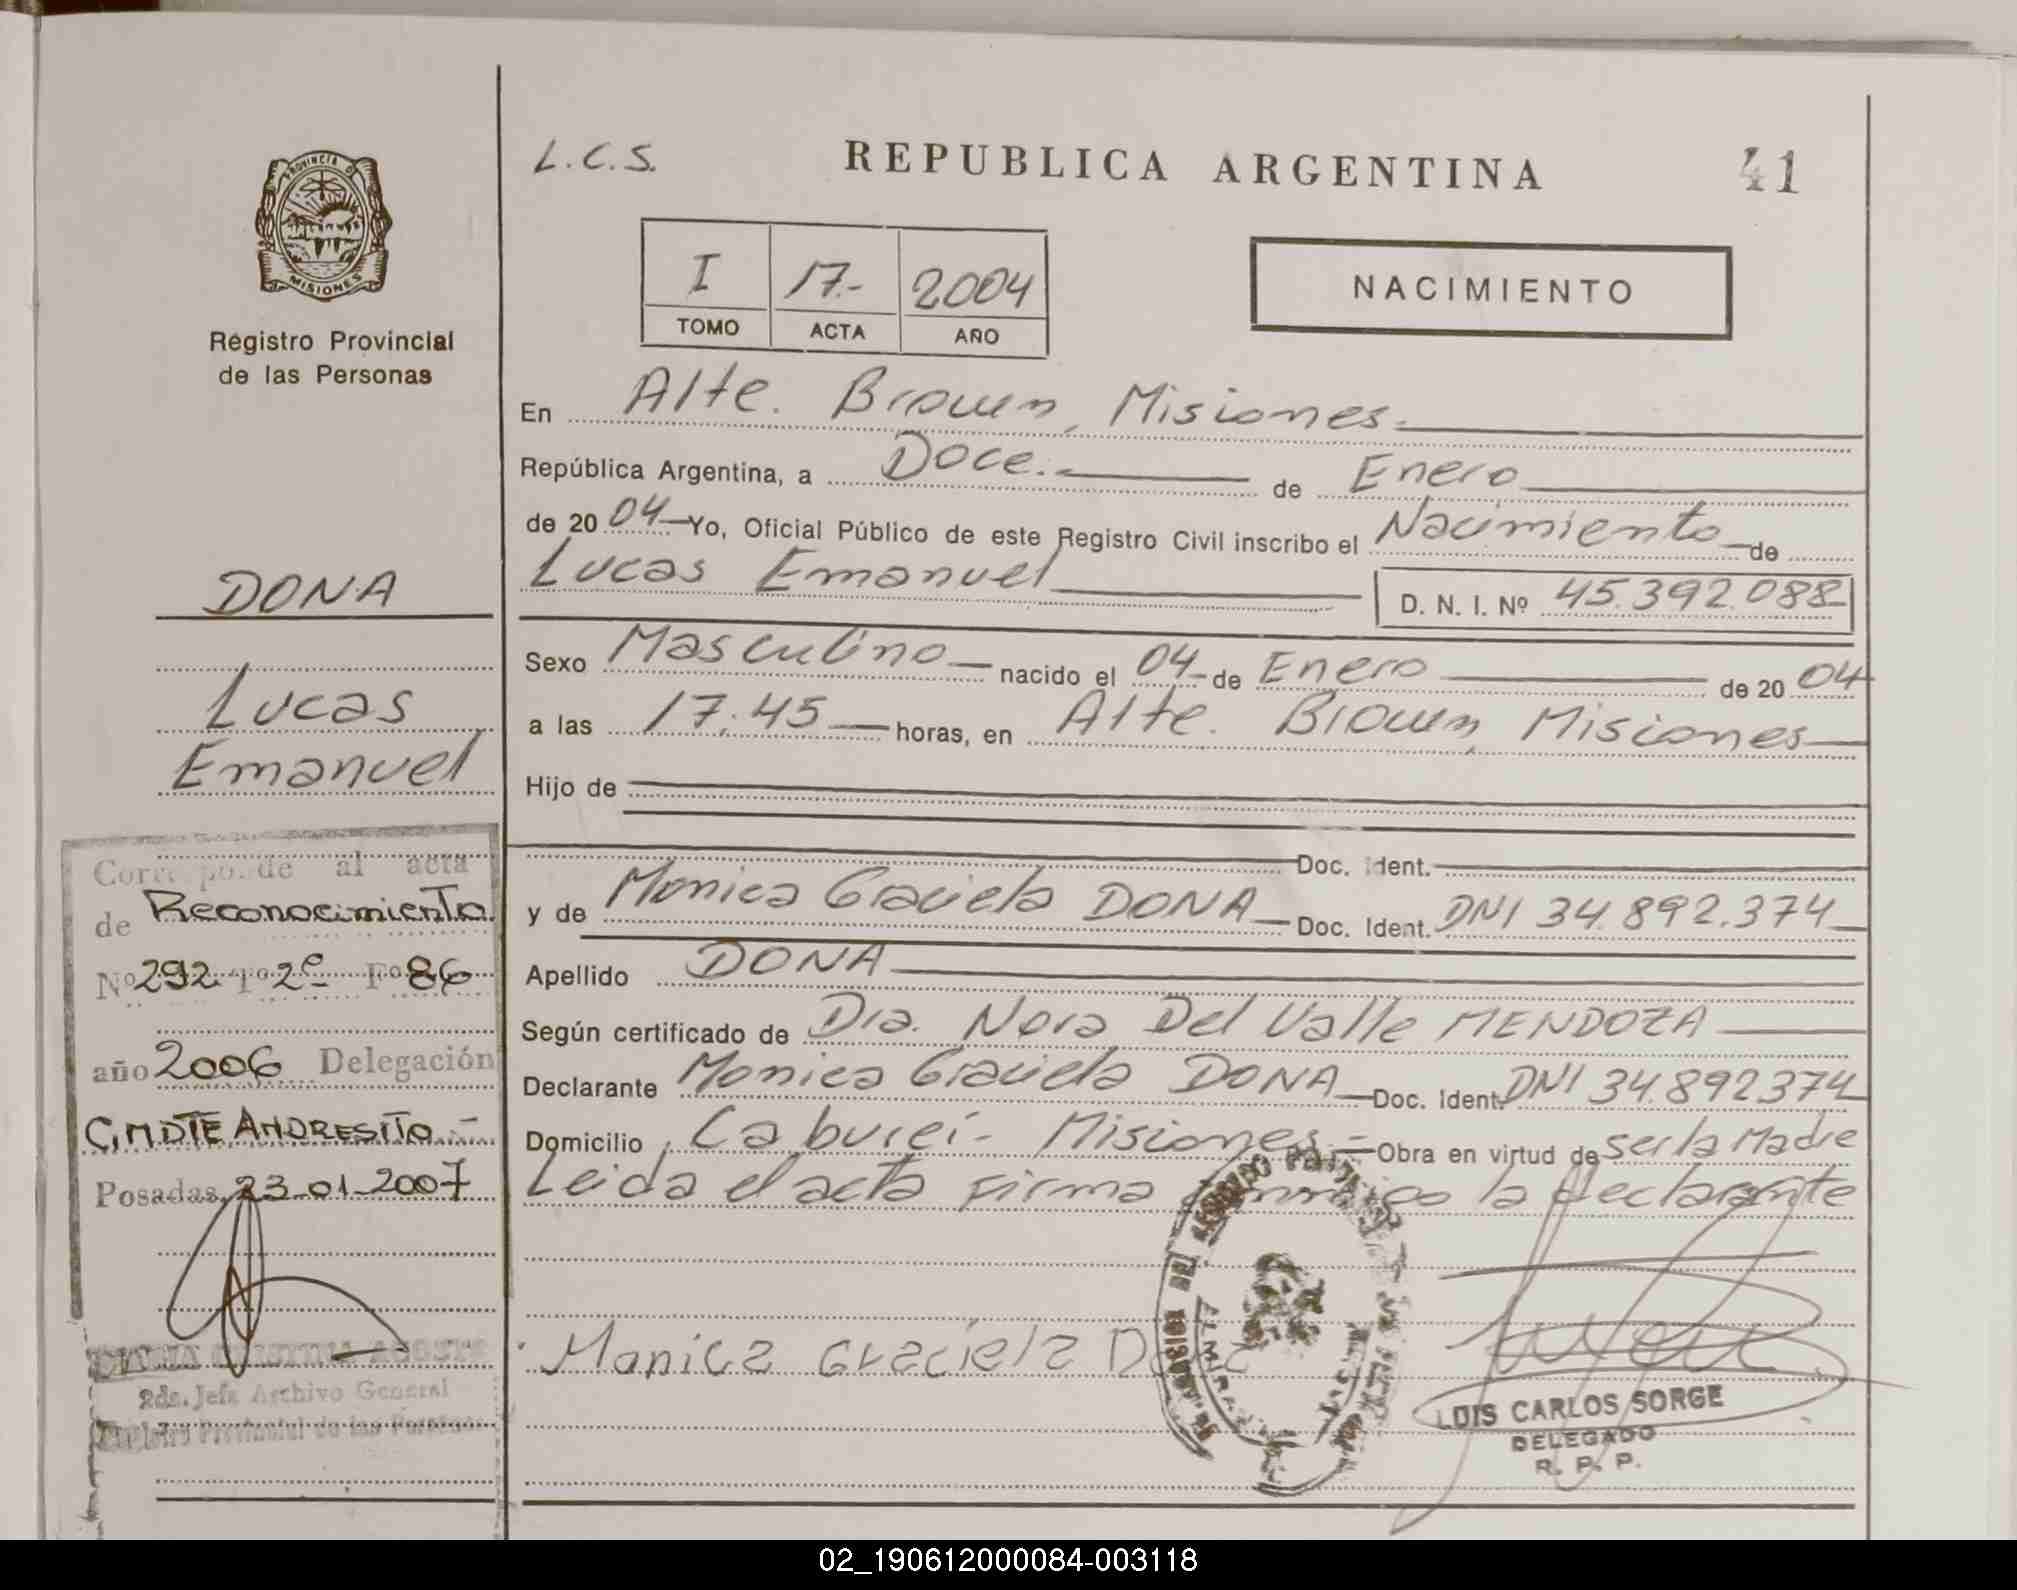 PROVINCIA D
MISIONES
Registro Provincial
de las Personas
DONA
Lucas
Emanuel
Corresponde al acta
de Reconocimiento
Nº 292 Tº 2º Fº 86
año 2006 Delegación
C,MDTE ANDRESITO.-
Posadas, 23-01-2007
2da. Jefa Archivo General
Registro Provincial de las Personas
L.C.S. REPUBLICA ARGENTINA 41
I 17.- 2004
TOMO ACTA AÑO
NACIMIENTO
En Alte. Brown, Misiones.
República Argentina, a Doce.- de Enero
de 20 04 Yo, Oficial Público de este Registro Civil inscribo el Nacimiento de
Lucas Emanuel D. N. I. Nº 45.392.088
Sexo Masculino nacido el 04 de Enero de 20 04
a las 17.45 horas, en Alte. Brown, Misiones
Hijo de
Doc. Ident.
y de Monica Graciela DONA Doc. Ident. DNI 34.892.374
Apellido DONA
Según certificado de Dra. Nora Del Valle MENDOZA
Declarante Monica Graciela DONA Doc. Ident. DNI 34.892374
Domicilio Caburei- Misiones.- Obra en virtud de ser la Madre
Leida el acta firma conmigo la declarante
Monica Graciela
LUIS CARLOS SORGE
DELEGADO
R. P. P.
02_190612000084-003118